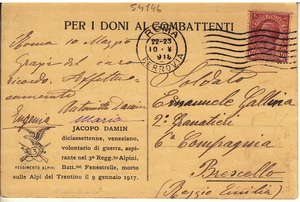 54146
PER I DONI AI COMBATTENTI
ROMA
22-23
10 · V
FERROVIA
Roma 10 Maggio
Grazie del caro
ricordo. Affettuo-
samente
Antonietta Damin
Eugenia Maria
JACOPO DAMIN
diciassettenne, veneziano,
volontario di guerra, aspi-
rante nel 3º Regg.to Alpini,
Batt.ne Fenestrelle, morto
sulle Alpi del Trentino il 9 gennaio 1917.
3
REGGIMENTO ALPINI
Soldato
Emanuele Gallina
2º Granatieri
6ª Compagnia
Brescello
(Reggio Emilia)